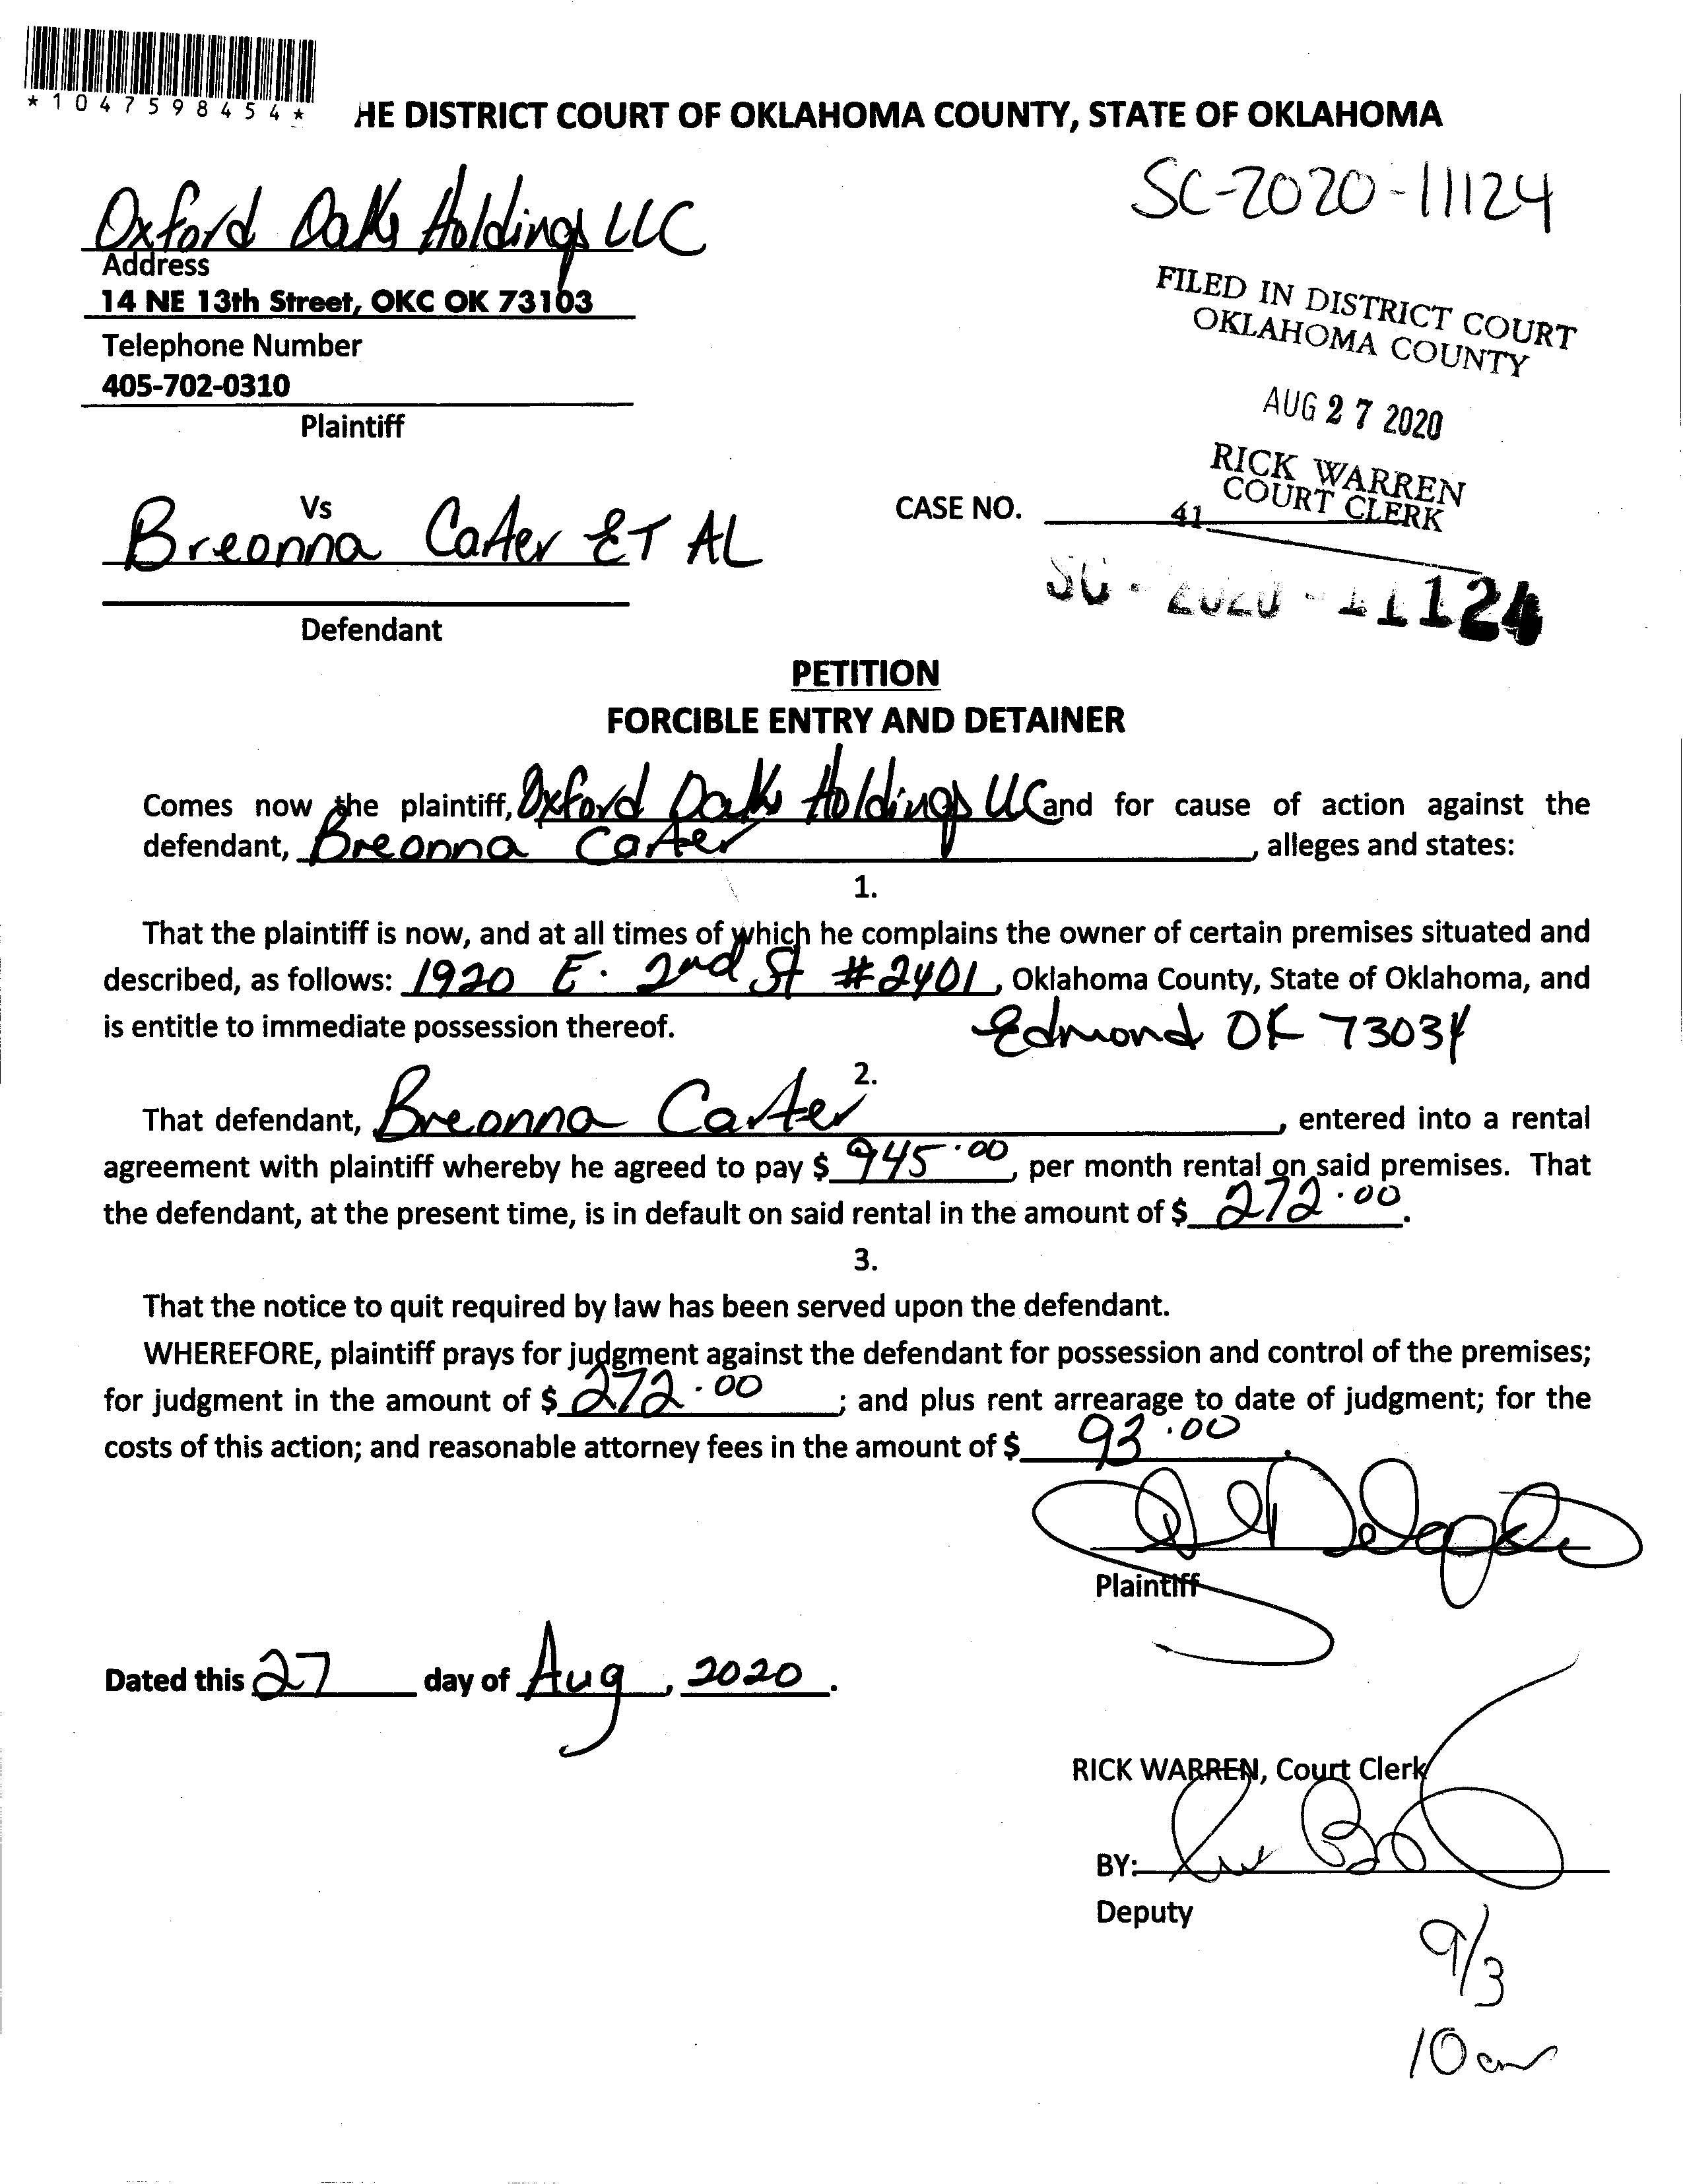 *1047598454*
HE DISTRICT COURT OF OKLAHOMA COUNTY, STATE OF OKLAHOMA
SC-2020-11124
Oxford Oaks Holdings LLC
Address
14 NE 13th Street, OKC OK 73103
Telephone Number
405-702-0310
Plaintiff
FILED IN DISTRICT COURT
OKLAHOMA COUNTY
AUG 27 2020
RICK WARREN
COURT CLERK
41
Vs
Breonna Carter ET AL
Defendant
CASE NO.
SC-2020-11124
PETITION
FORCIBLE ENTRY AND DETAINER
Comes now the plaintiff, Oxford Oaks Holdings LLC and for cause of action against the
defendant, Breonna Carter, alleges and states:
1.
That the plaintiff is now, and at all times of which he complains the owner of certain premises situated and
described, as follows: 1920 E. 2nd St #2401, Oklahoma County, State of Oklahoma, and
is entitle to immediate possession thereof. Edmond OK 73034
2.
That defendant, Breonna Carter, entered into a rental
agreement with plaintiff whereby he agreed to pay $ 945.00, per month rental on said premises. That
the defendant, at the present time, is in default on said rental in the amount of $ 272.00.
3.
That the notice to quit required by law has been served upon the defendant.
WHEREFORE, plaintiff prays for judgment against the defendant for possession and control of the premises;
for judgment in the amount of $ 272.00; and plus rent arrearage to date of judgment; for the
costs of this action; and reasonable attorney fees in the amount of $ 93.00.
Plaintiff
Dated this 27 day of Aug, 2020.
RICK WARREN, Court Clerk
BY:
Deputy
9/3
10am